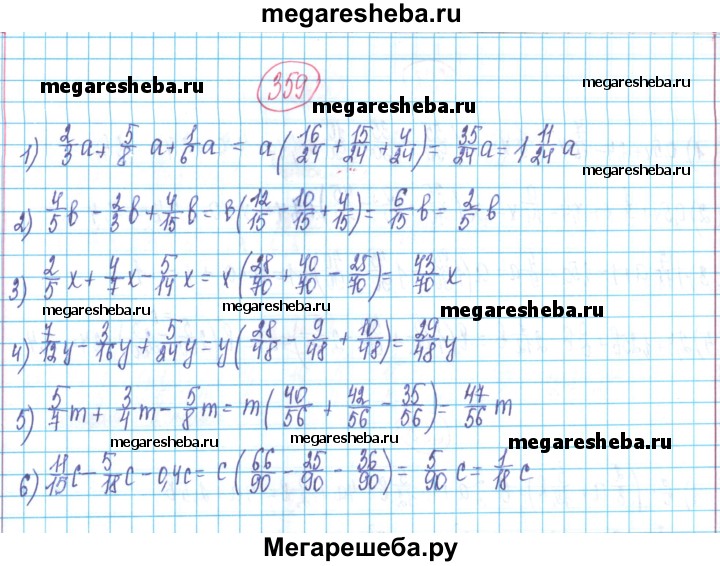 megaresheba.ru
359
megaresheba.ru megaresheba.ru
megaresheba.ru
1) 2/3 a + 5/8 a + 1/6 a = a(16/24 + 15/24 + 4/24) = 35/24 a = 1 11/24 a
megaresheba.ru megaresheba.ru
2) 4/5 в - 2/3 в + 4/15 в = в(12/15 - 10/15 + 4/15) = 6/15 в = 2/5 в
3) 2/5 x + 4/7 x - 5/14 x = x(28/70 + 40/70 - 25/70) = 43/70 x
megaresheba.ru megaresheba.ru megaresheba.ru
4) 7/12 y - 3/16 y + 5/24 y = y(28/48 - 9/48 + 10/48) = 29/48 y
5) 5/7 m + 3/4 m - 5/8 m = m(40/56 + 42/56 - 35/56) = 47/56 m
megaresheba.ru megaresheba.ru megaresheba.ru
6) 11/15 c - 5/18 c - 0,4c = c(66/90 - 25/90 - 36/90) = 5/90 c = 1/18 c
Мегарешеба.ру